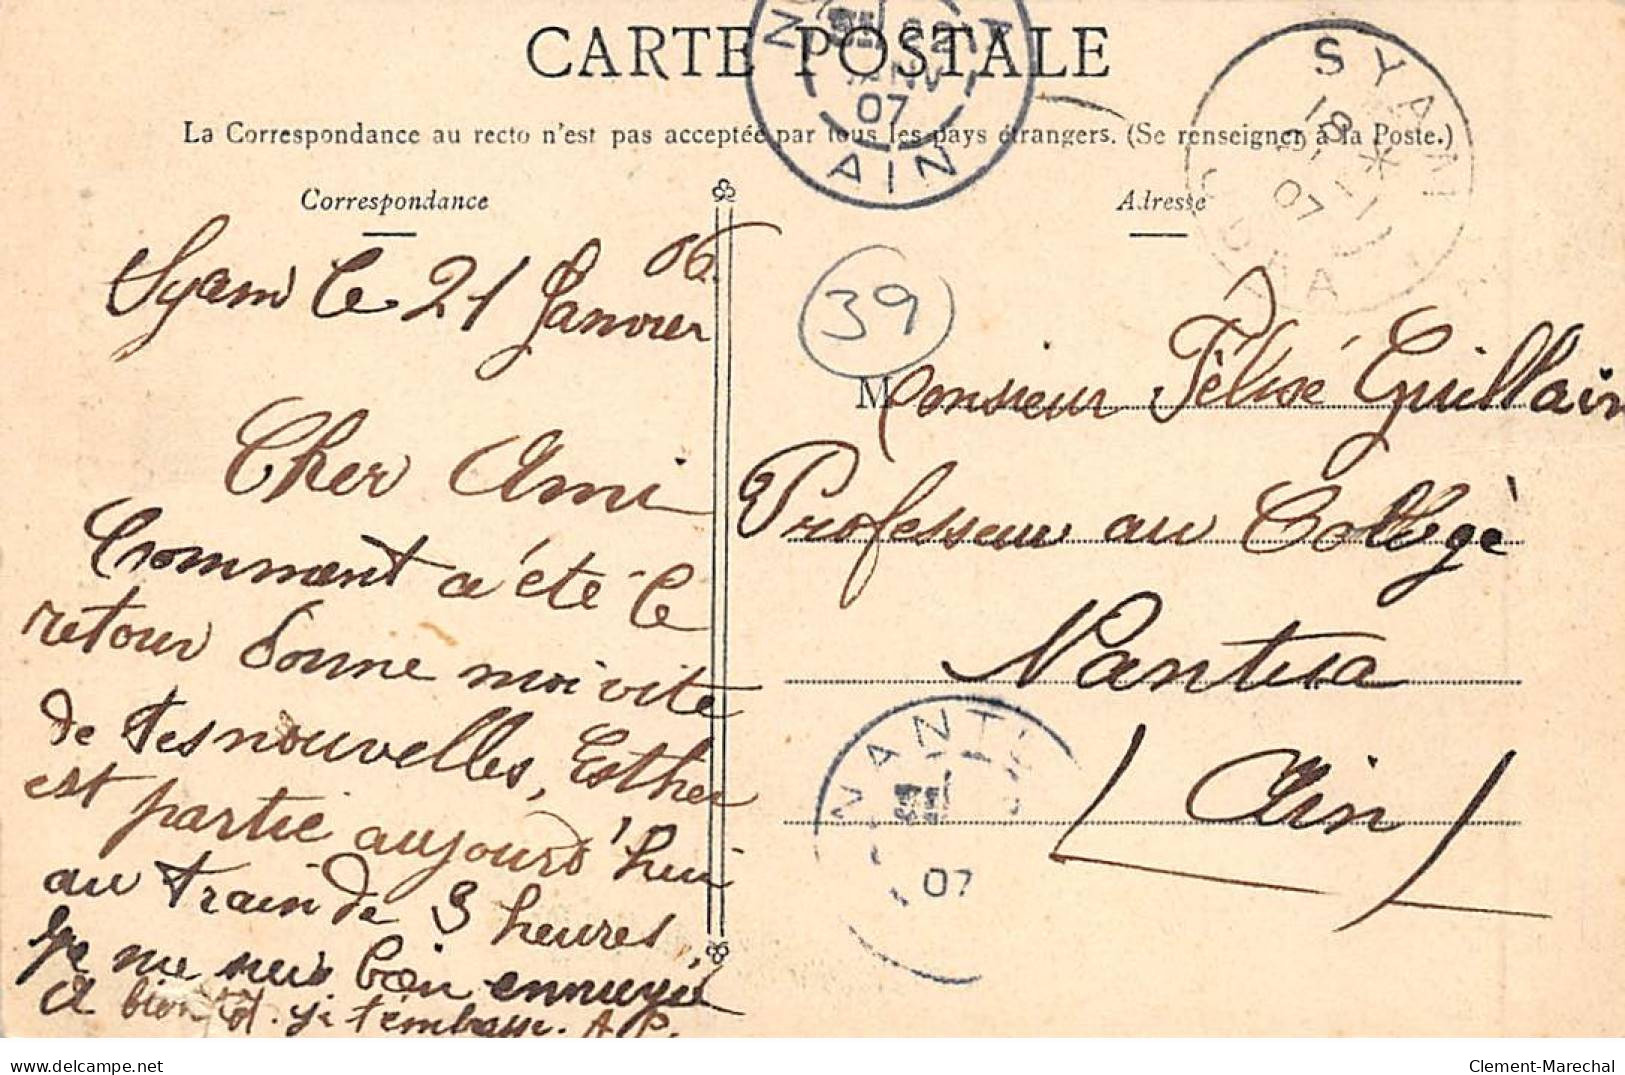 CARTE POSTALE
La Correspondance au recto n'est pas acceptée par tous les pays étrangers. (Se renseigner à la Poste.)
Correspondance
Syam le 21 Janvier 06.
Cher Ami
Comment a été le
retour donne moi vite
de tes nouvelles, Esther
est partie aujourd'hui
au train de 3 heures,
Je me suis bien ennuyé
A bientôt. Je t'embrasse. A.P.
Adresse
39
Monsieur Félix Guillain
Professeur au Collège
Nantua
(Ain)
22
JANV
07
AIN
SYAM
18
07
JURA
NANT
07
delcampe.net
Clement-Marechal